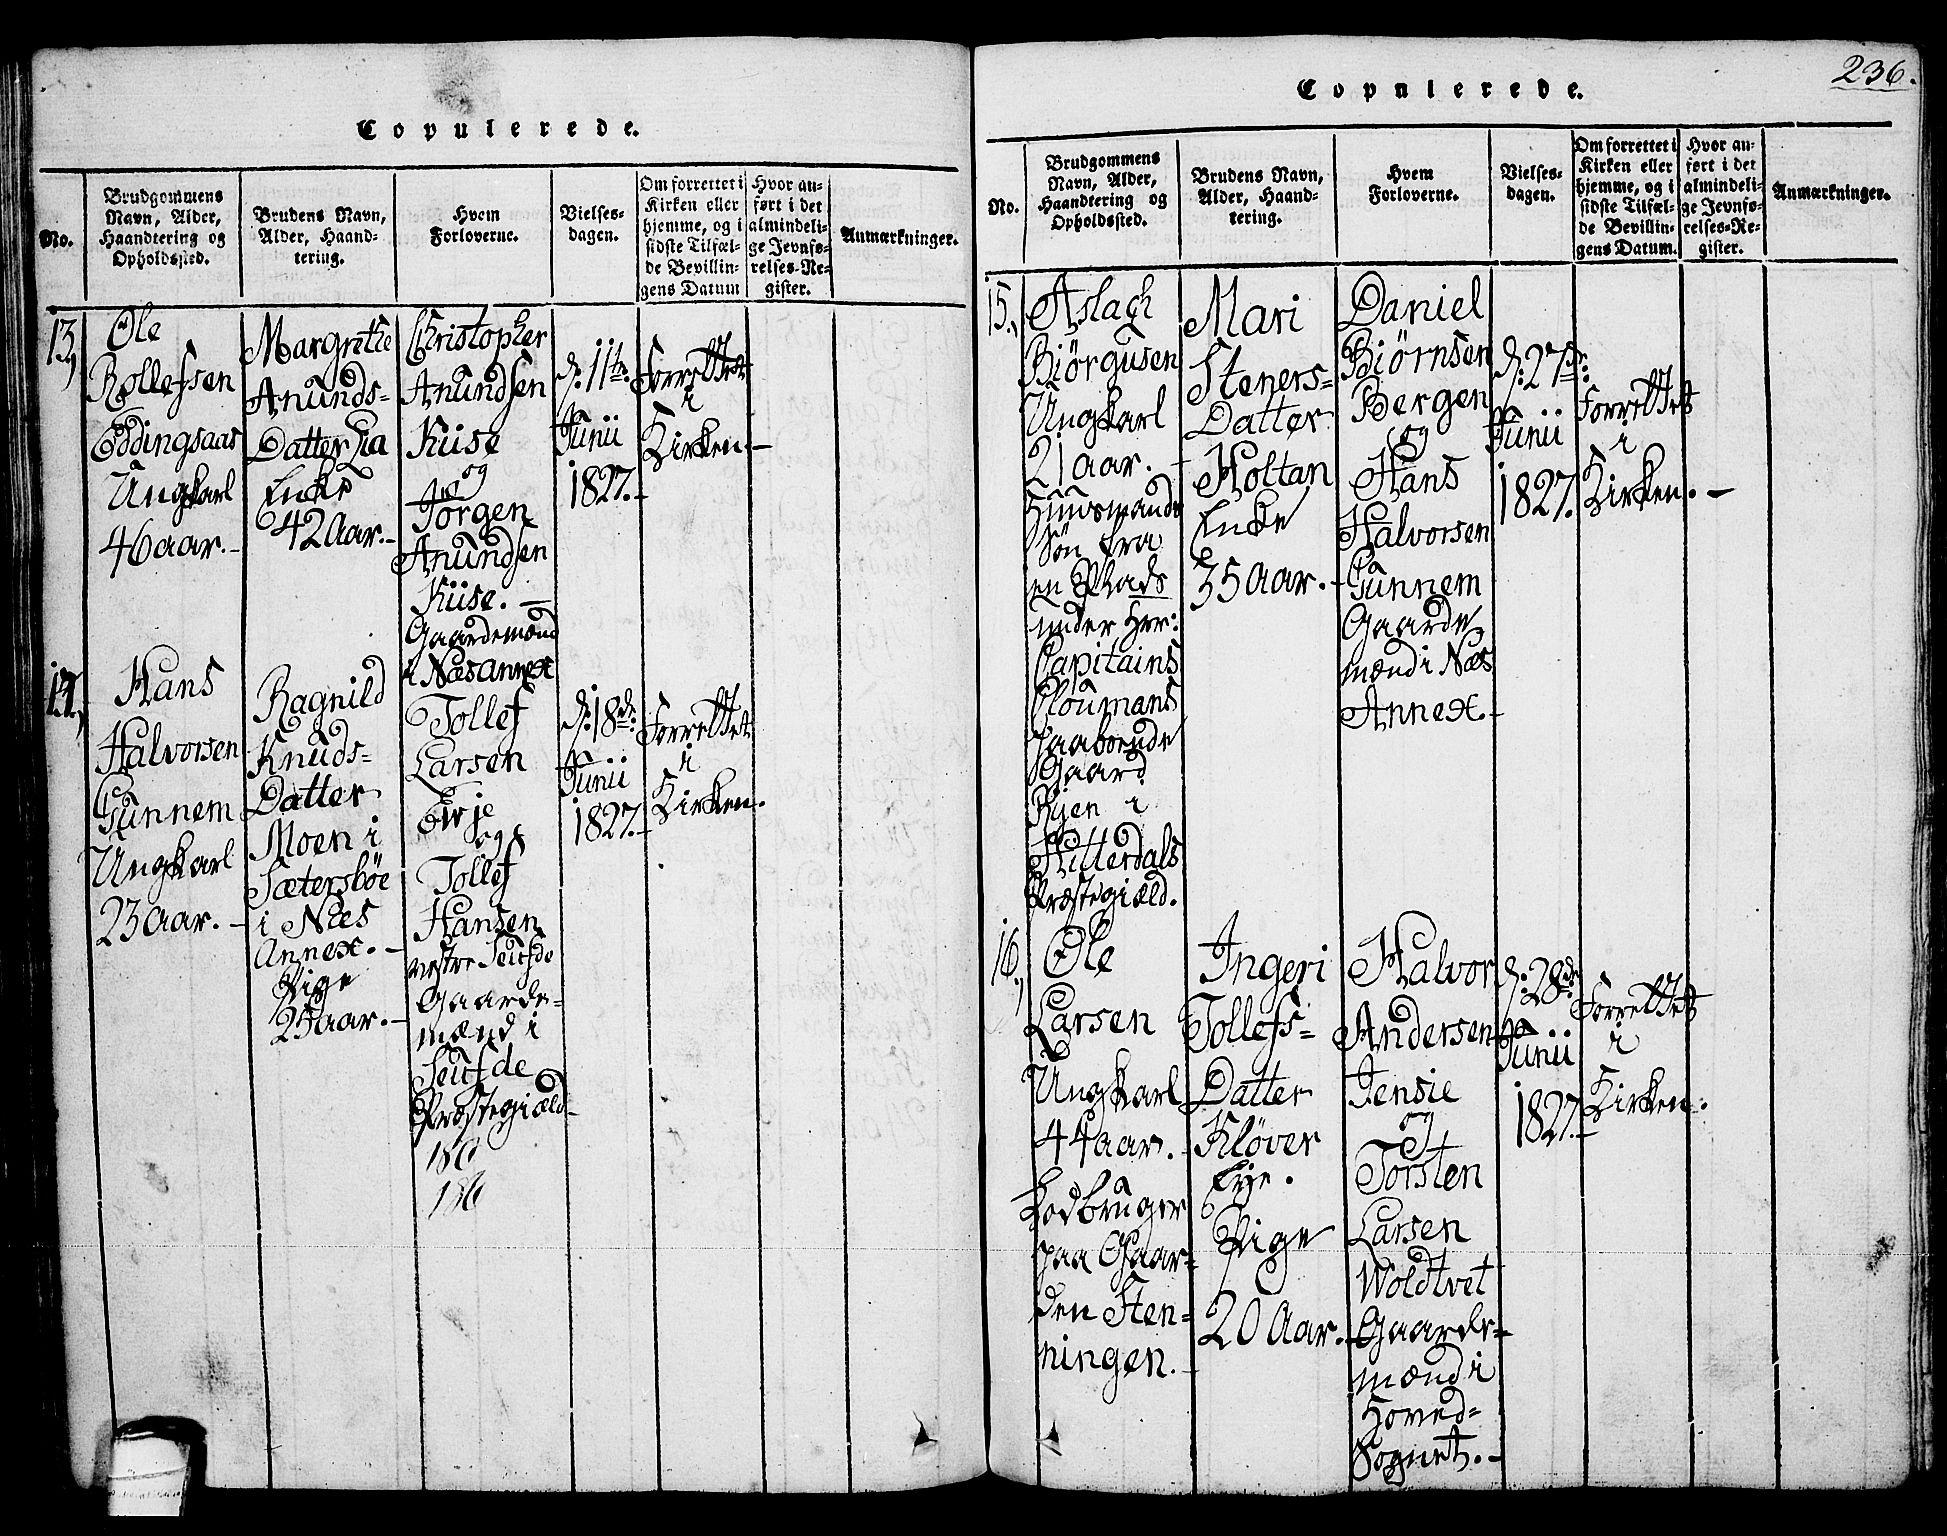 Copulerede.
No.
Brudgommens
Navn, Alder,
Haandtering og
Opholdssted.
Brudens Navn,
Alder, Haand-
tering.
Hvem
Forloverne.
Vielses-
dagen.
Om forrettet i
Kirken eller
hjemme, og i
sidste Tilfæl-
de Bevillin-
gens Datum
Hvor an-
ført i det
almindeli-
ge Jevnfø-
relses-Re-
gister.
Anmærkninger.
13,
Ole
Rollefsen
Eddingsaas
Ungkarl
46 aar.
Margrethe
Anunds-
Datter Lia
Enke
42 Aar.
Christopher
Anundsen
Kiise
og
Jørgen
Anundsen
Kiise.
Gaardemænd
i Næs Annex
d: 11te
Junii
1827.
Forrettet
i
Kirken.
14,
Hans
Halvorsen
Gunnem
Ungkarl
23 aar.
Ragnild
Knuds-
Datter
Moen i
Sætersbøe
i Næs
Annex.
Pige
25 aar.
Tollef
Larsen
Evje
og
Tollef
Hansen
nestre
Gaarde-
mænd i
Seufde
Præstegiæld
186
186
d: 18de
Junii
1827.
Forrettet
i
Kirken.
236.
Copulerede.
No.
Brudgommens
Navn, Alder,
Haandtering og
Opholdssted.
Brudens Navn,
Alder, Haand-
tering.
Hvem
Forloverne.
Vielses-
dagen.
Om forrettet i
Kirken eller
hjemme, og i
sidste Tilfæl-
de Bevillin-
gens Datum.
Hvor an-
ført i det
almindeli-
ge Jevnfø-
relses-Re-
gister.
Anmærkninger.
15.,
Aslach
Biørgusen
Ungkarl
21 aar.
Huusmands
Søn fra
en Plads
under Hrr:
Capitains
Cloumans
paaboende
Gaard
Ryen i
Hitterdals
Præstegiæld.
Mari
Steners-
Datter
Holtan
Enke
35 Aar.
Daniel
Biørnsen
Bergen
og
Hans
Halvorsen
Gunnem
Gaarde
mænd i Næs
Annex.
d: 27de
Junii
1827.
Forrettet
i
Kirken.
16.,
Ole
Larsen
Ungkarl
44 aar.
Lodbruger
paa Gaar-
den Sten-
ningen.
Ingeri
Tollefs-
Datter
Kløver
Eje.
Pige
20 Aar.
Halvor
Andersen
Jensie
og
Torsten
Larsen
Woldtvet
Gaarde-
mænd i
Hoved-
Sognet.
d: 28de
Junii
1827.
Forrettet
i
Kirken.